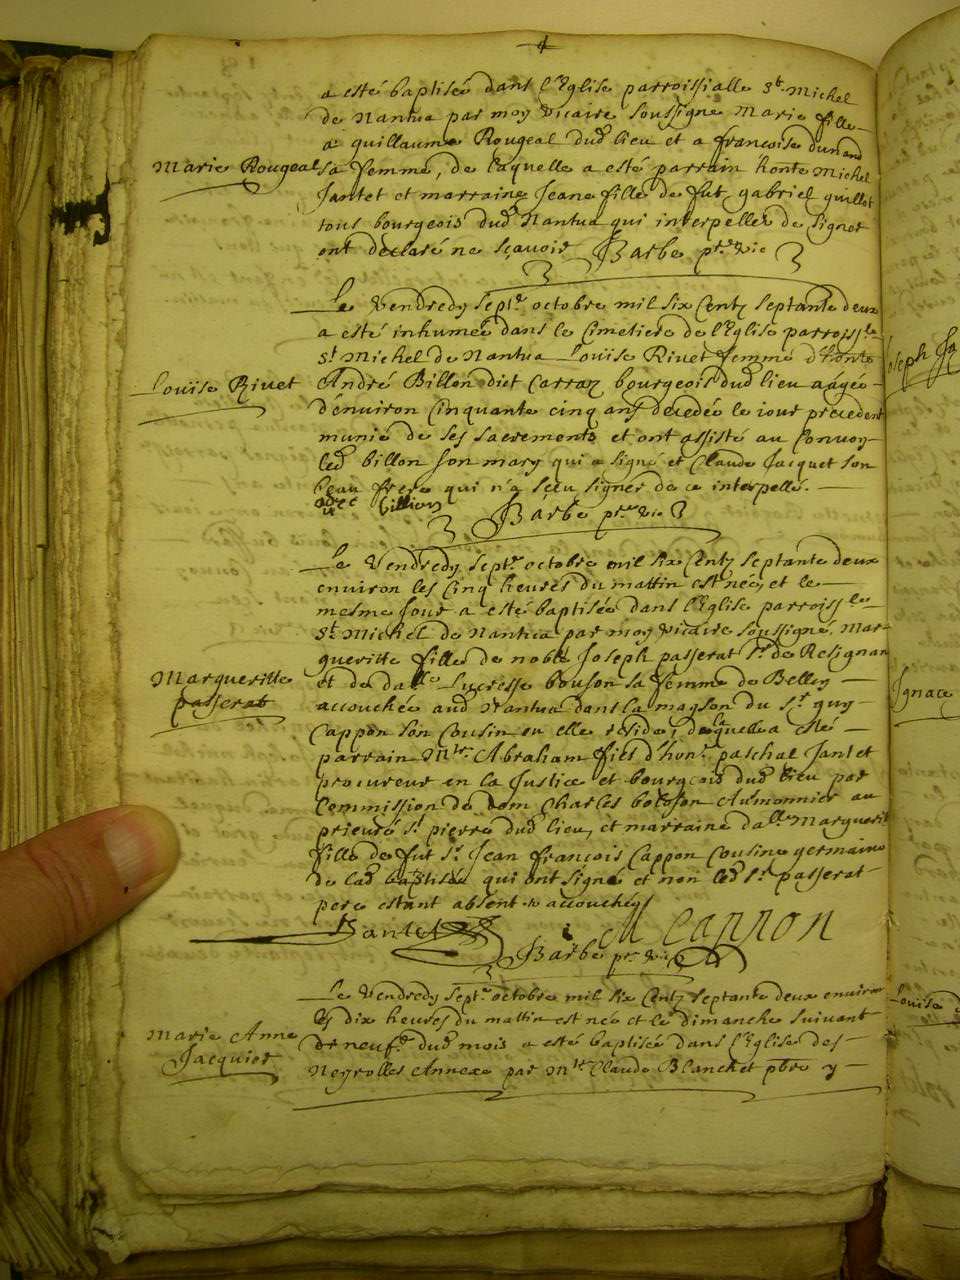 a esté baptisée dans l'Eglise parroissialle St Michel
de Nantua par moy vicaire soussigné Marie fille
a guillaume Rougeal dud lieu et a francoise dunand
Marie Rougeal
sa femme, de laquelle a esté parrain honte Michel
Jantet et marraine Jeane fille de fut gabriel guillot
tous bourgeois dud Nantua qui interpellez de signer
ont declaré ne sçavoir Barbe ptre vic
Le Vendredy septe octobre mil six Centz septante deux
a esté inhumée dans le Cimetiere de l'Eglise parroissle
St Michel de Nantua Loüise Rivet femme d'honte
Loüise Rivet
André Billon dict Carraz bourgeois dud lieu aagée
d'environ Cinquante cinq ans decedée le iour precedent
munie de ses sacrements et ont assisté au Convoy
led billon son mary qui a signé et Claude Jacquet son
beau frere qui n'a sceu signer de ce interpellé.
billion Barbe ptre vic
Le Vendredy septe octobre mil six Centz septante deux
environ les Cinq heures du mattin est née, et le
mesme Jour a esté baptisée dans l'Eglise parroissle
St Michel de Nantua par moy vicaire soussigné. Mar-
gueritte fille de noble Joseph passerat Sr de
Margueritte
passerat
et de dalle Lucresse bouson sa femme de Belley
accouchée aud Nantua dans la mayson du Sr guy
Cappon son Cousin ou elle reside; de laquelle a esté
parrain Mtre Abraham fils d'honte paschal Jantet
procureur en la Justice et bourgeois dud lieu par
Commission de dom Charles Aumonnier au
prieuré St pierre dud lieu, et marraine dalle Marguerit
fille de fut Sr Jean François Cappon Cousine germaine
de lad baptisée qui ont signé et non led Sr passerat
pere estant absent
Jantet M Cappon
Barbe ptre vic
Le Vendredy septe octobre mil six Centz septante deux environ
les dix heures du mattin est née et le dimanche suivant
Marie Anne
Jacquier
dud mois a esté baptisée dans l'Eglise des
Neyrolles Annexe par Mre Claude Blanchet pbre y
Joseph Ja
Ignace
Louise